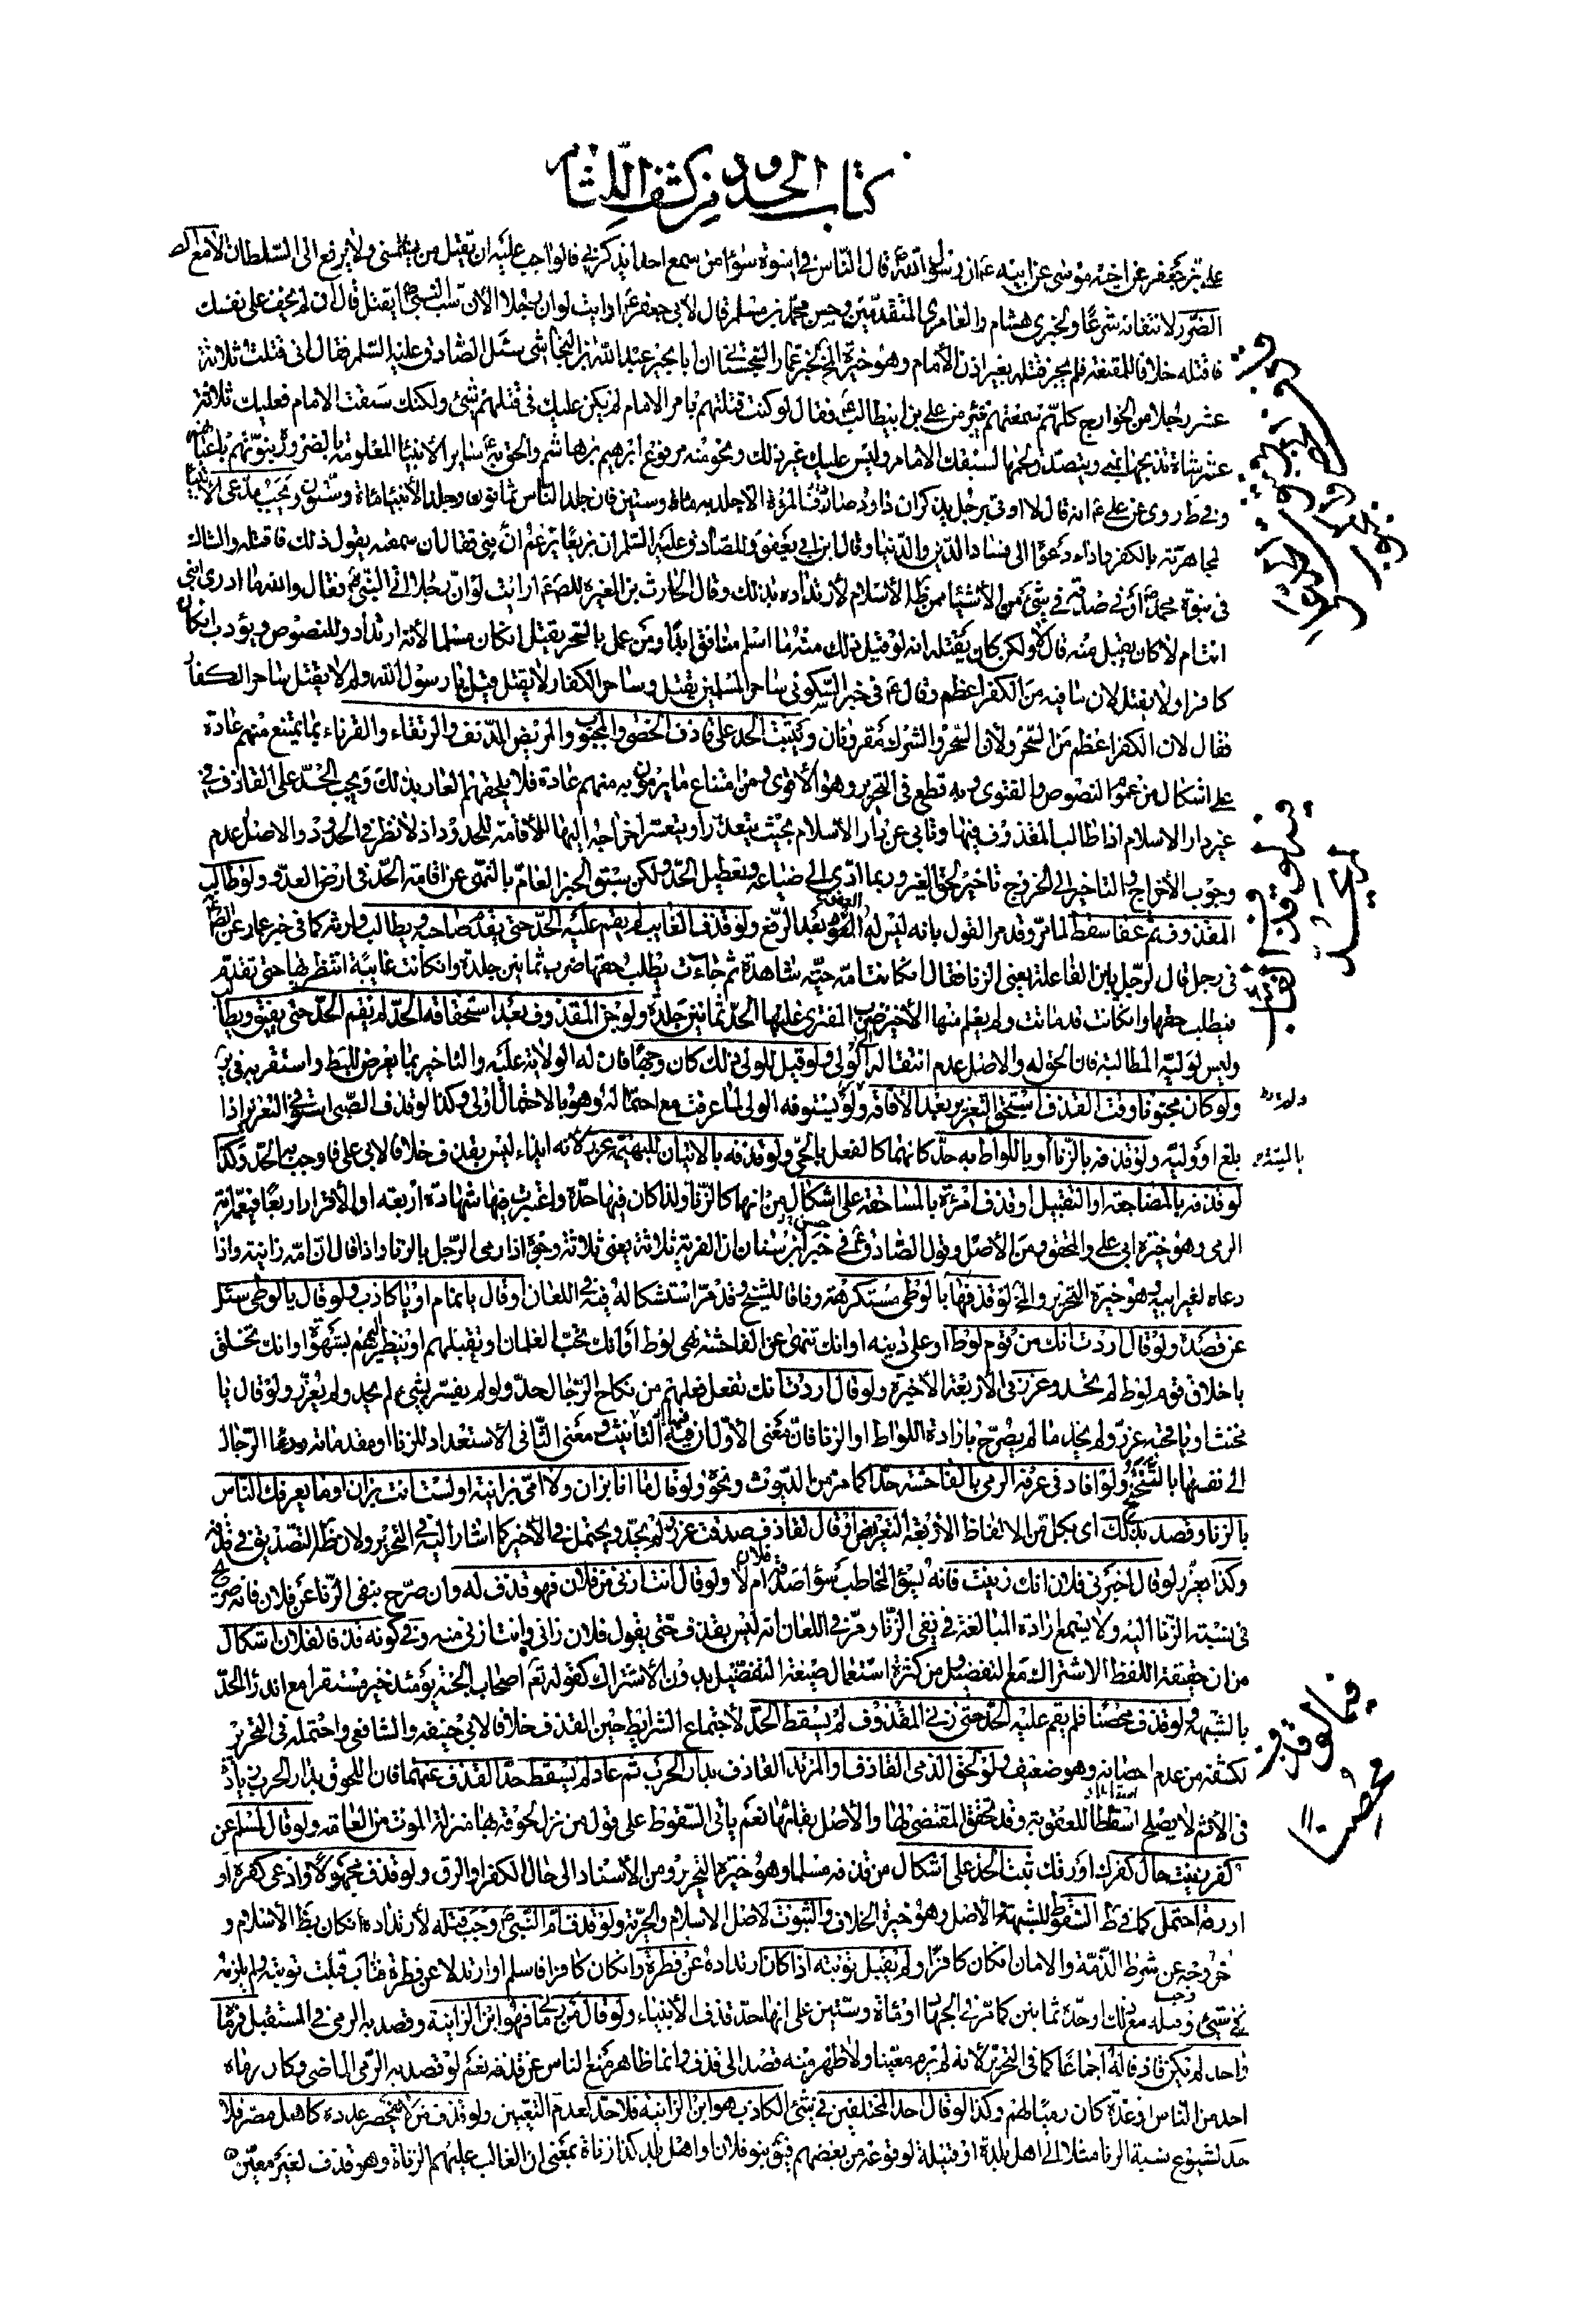 كتاب الحدود من كشف اللثام
علي بن جعفر عن اخيه موسى عن ابيه ع ان رسول الله ص قال الناس في اسوة سواء من سمع احدا يذكرني فالواجب عليه ان يقتل من شتمني ولا يرفع الى السلطان الا مع
الضرر لانتفائه شرعا ولخبري هشام والعامري المتقدمين وحسن محمد بن مسلم قال لابي جعفر ع ارايت لو ان رجلا الان سب النبي ص ايقتل قال ان لم تخف على نفسك
فاقتله خلافا للمقنعة فلم يجز قتله بغير اذن الامام وهو خيرة المخ لخبر عمار السجستاني ان ابا بجير عبد الله بن النجاشي سئل الصادق عليه السلم فقال اني قتلت ثلاثة
عشر رجلا من الخوارج كلهم سمعتهم يتبرء من علي بن ابيطالب ع فقال لو كنت قتلتهم بامر الامام لم يكن عليك في قتلهم شئ ولكنك سبقت الامام فعليك ثلاثة
عشر شاة تذبحها بمنى ويتصدق بلحمها لسبقك الامام وليس عليك غير ذلك ونحو منه مرفوع ابرهيم بن هاشم والحق به ع سائر الانبياء المعلومة بالضرورة نبوتهم
وفي ط روى عن علي ع انه قال لا اوتي برجل يذكر ان داود صادف المرءة الا جلدته مائة وستين فان جلد الناس ثمانون وجلد الانبياء مائة وستون ويجب قتل مدعي
لمجاهرته بالكفر واداء دعوته الى فساد الدين والدنيا وقال ابن ابي يعفور للصادق عليه السلم ان بزيعا يزعم انه نبي فقال ان سمعته يقول ذلك فاقتله والشاك
في نبوة محمد ص او في صدقه في شئ من الاشياء ممن ظاهره الاسلام لارتداده بذلك وقال الحارث بن المغيرة للص ع ارايت لو ان رجلا اتى النبي ص فقال والله ما ادري انبي
انت ام لا كان يقبل منه قال لا ولكن كان يقتله انه لو قبل ذلك منه ما اسلم منافق ابدا ومن عمل بالسحر يقتل ان كان مسلما لانه ارتداد وللنصوص ويؤدب ان كان
كافرا ولا يقتل لان ما فيه من الكفر اعظم وقال ع في خبر السكوني ساحر المسلمين يقتل وساحر الكفار لا يقتل قيل يا رسول الله ولم لا يقتل ساحر الكفار
فقال لان الكفر اعظم من السحر ولان السحر والشرك مقرونان ويثبت الحد على قاذف الخصي والمجبوب والمريض المدنف والرتقاء والقرناء بما يمتنع منهم عادة
على اشكال من عموم النصوص والفتوى وبه قطع في التحرير وهو الاقوى ومن امتناع ما يرمون به منهم عادة فلا يلحقهم العار بذلك ويجب الحد على القاذف في
غير دار الاسلام اذا طالب المقذوف فيها وتاتي عن دار الاسلام بحيث يتعذر او يتعسر اخراجه اليها لاقامة الحدود اذ لا نظر في الحدود والاصل عدم
وجوب الاخراج والتاخير الى الخروج تاخير لحق الغير وربما ادى الى ضياعه وتعطيل الحد ولكن سبق الخبر العام بالنهي عن اقامة الحد في ارض العدو ولو طالب
المقذوف ثم عفا سقط لما مر وقد مر القول بانه ليس له العفو بعد الرفع ولو قذف الغايب لم يقم عليه الحد حتى يقدم صاحبه ويطالب وارثه كما في خبر عمار عن الص ع
في رجل قال لرجل يابن الفاعلة يعني الزنا فقال ان كانت امه حية شاهدة ثم جاءت يطلب حقها ضرب ثمانين جلدة وان كانت غايبة انتظر بها حتى تقدم
فيطلب حقها وان كانت قد ماتت ولم يعلم منها الا خير ضرب المفتري عليها الحد ثمانين جلدة ولو جن المقذوف بعد استحقاقه الحد لم يقم الحد حتى يفيق ويطالب
وليس لوليه المطالبة فان الحق له والاصل عدم انتقاله الى الولي ولو قيل للولي ذلك كان وجها فان له الولاية عليه والتاخير بما يعرض للسقط واستقر به في ير
ولو كان مجنونا وقت القذف استحق التعزير بعد الافاقة ولو يستوفه الولي لما عرفت مع احتماله وهو بالاحتمال اولى وكذا لو قذف الصبي استحق التعزير اذا
بلغ او وليه ولو قذفه بالزنا او باللواط به حد كانهما كالفعل بالحي ولو قذفه بالاتيان للبهيمة عزر لانه ايذاء ليس بقذف خلافا لابي علي فاوجب به الحد وكذا
لو قذفه بالمضاجعة او التقبيل او قذف امرءة بالمساحقة على اشكال من انها كالزنا ولذا كان فيها حده واعتبر فيها شهادة اربعة او الاقرار اربعا فيعمه اية
الرمي وهو خيرة ابي علي والمحقق ومن الاصل وقول الصادق ع في خبر ابن سنان ان الفرية ثلاثة يعني ثلاثة وجوه اذا رمى الرجل بالزنا واذا قال ان امه زانية واذا
دعاه لغير ابيه وهو خيرة التحرير والمخ لو قذفها بالوطي مستكرهة وفاقا للشيخ وقد مر استشكاله فيه في اللعان او قال يا نمام او يا كاذب ولو قال يا لوطي سئل
عن قصده ولو قال اردت انك من قوم لوط او على دينه او انك تنهى عن الفاحشة نهي لوط او انك تحب الغلمان او تقبلهم او تنظر اليهم بشهوة او انك تتخلق
باخلاق قوم لوط لم يحد وعزر في الاربعة الاخيرة ولو قال اردت انك تفعل فعلهم من نكاح الرجال حد ولو لم يفسر بشئ لم يحد ولم يعزر ولو قال يا
مخنث او يا قحبة عزر ولم يحد ما لم يصرح بارادة اللواط او الزنا فان معنى الاول ان فيه التانيث ومعنى الثاني الاستعداد للزنا او مقدماته ودعاء الرجال
الى نفسها بالتنحنح ولو افاد في عرفه الرمي بالفاحشة حد كما مر من الديوث ونحوه ولو قال ما انا بزان ولا امي بزانية او لست انت بزان او ما يعرفك الناس
بالزنا وقصد بذلك اي بكل من الالفاظ الاربعة التعريض او قال لقاذف صدقت عزر ولم يحد ويحتمل في الاخير كما اشار اليه في التحرير ولان ظاهره التصديق في قذفه
وكذا يعزر لو قال اخبرني فلان انك زنيت فانه يسوء المخاطب سواء صدقه فلان ام لا ولو قال انت ازنى من فلان فهو قذف له وان صرح بنفي الزنا عن فلان فانه صريح
في نسبة الزنا اليه ولا يسمع ارادة المبالغة في نفي الزنا ومر في اللعان انه ليس بقذف حتى يقول فلان زاني وانت ازنى منه وفي كونه قذفا لفلان اشكال
من ان حقيقة اللفظ الاشتراك مع التفضيل ومن كثرة استعمال صيغة التفضيل بدون الاشتراك كقوله تع اصحاب الجنة يومئذ خير مستقرا مع اندراء الحد
بالشبهة ولو قذف محصنا فلم يقم عليه الحد حتى زنى المقذوف لم يسقط الحد لاجتماع الشرايط حين القذف خلافا لابي حنيفة والشافعي واحتمله في التحرير
لكشفه عن عدم احصانه وهو ضعيف ولو لحق الذمي القاذف او المرتد القاذف بدار الحرب ثم عاد لم يسقط حد القذف عنهما فان اللحوق بدار الحرب زيادة
في الاثم لا يصلح اسقاطا للعقوبة وقد تحقق المقتضي لها والاصل بقائها نعم ياتي السقوط على قول من نزل لحوقه بها منزلة الموت من العامة ولو قال المسلم عن
كفر زنيت حال كفرك او رقك ثبت الحد على اشكال من قذفه مسلما وهو خيرة التحرير ومن الاسناد الى حال الكفر او الرق ولو قذف مجهولا وادعى كفره او
رقه احتمل كما في ط السقوط للشبهة والاصل وهو خيرة الخلاف والثبوت لاصل الاسلام والحرية ولو قذف ام النبي ص وجب قتله لارتداده ان كان بظاهر الاسلام و
خروجه عن شرط الذمة والامان ان كان كافرا ولم يقبل توبته اذا كان ارتداده عن فطرة وان كان كافرا فاسلم او ارتد لا عن فطرة فتاب قبلت توبته ولم يلزمه
شئ وقيل مع ذلك وجب حده ثمانين كما مر او مائة وستين على انها حد قذف الانبياء ولو قال من رماني فهو ابن الزانية وقصد به الرمي في المستقبل فرماه
واحد لم يكن قاذفا له اجماعا كما في التحرير لانه لم يرم معينا ولا ظهر منه قصد الى قذف وانما ظاهره منع الناس عن قذفه نعم لو قصد به الرمي الماضي وكان رماه
احد من الناس او عدة كان رميا لهم وكذا لو قال احد المختلفين في شئ الكاذب هو ابن الزانية فلا حد لعدم التعيين ولو قذف من لا ينحصر عدده كاهل مصر فلا
حد لشيوع نسبة الزنا مثلا الى اهل بلدة او قبيلة لوقوعه من بعضهم فيق بنو فلان او اهل بلد كذا زناة بمعنى ان الغالب عليهم الزناة وهو قذف لغير معين